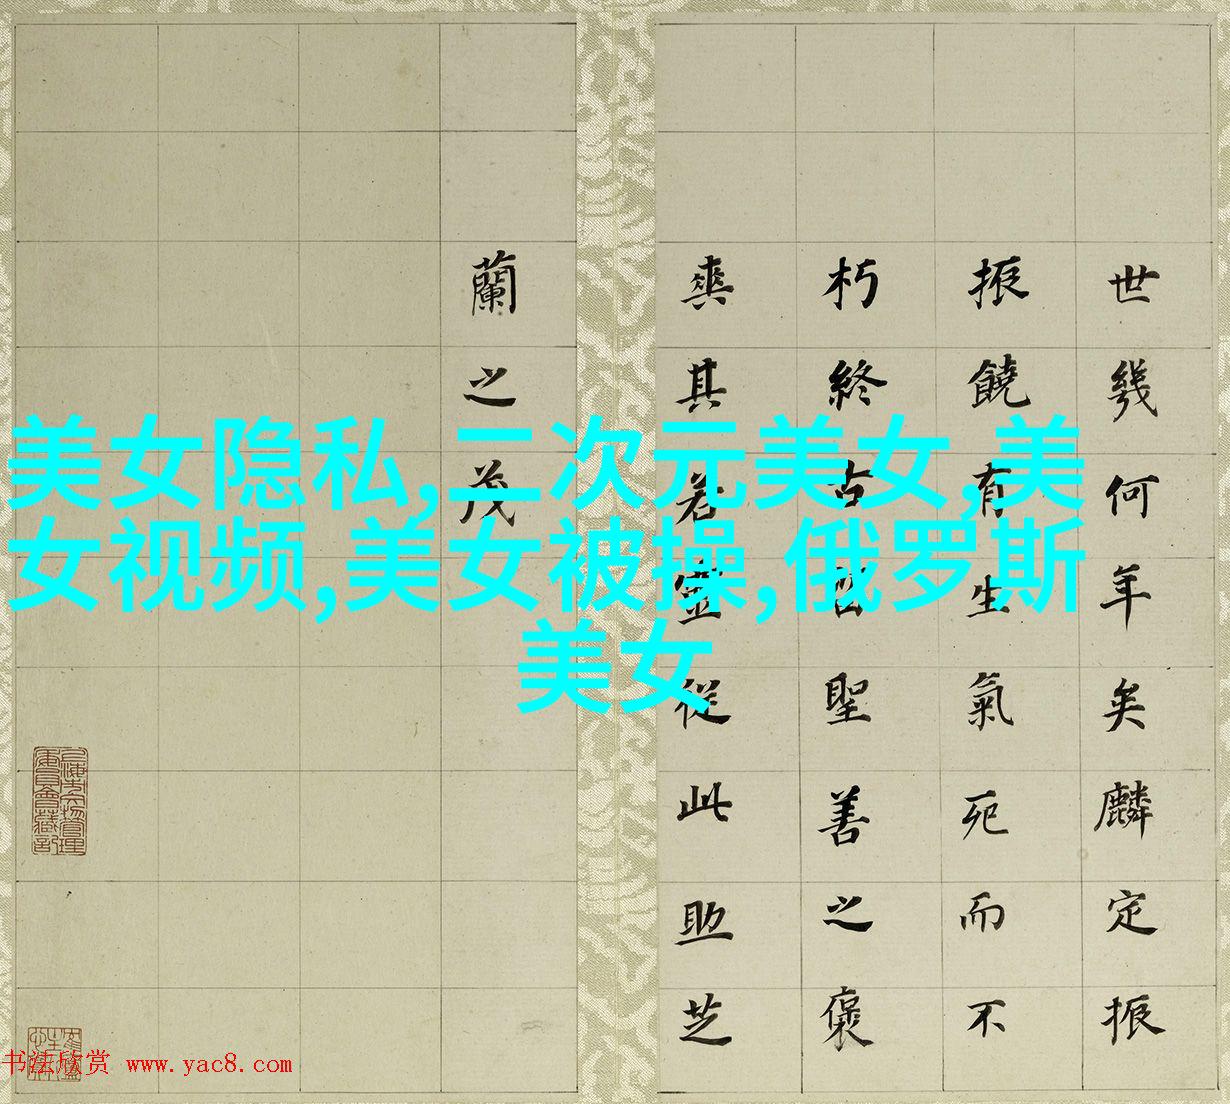 世幾何年矣麟定振
振饒有生氣死而不
朽終古聖善之褒
爽其靈從此助芝
蘭之茂
美女隐私,二次元美女,美
女视频,美女被操,俄罗斯
美女
书法欣赏 www.yac8.com